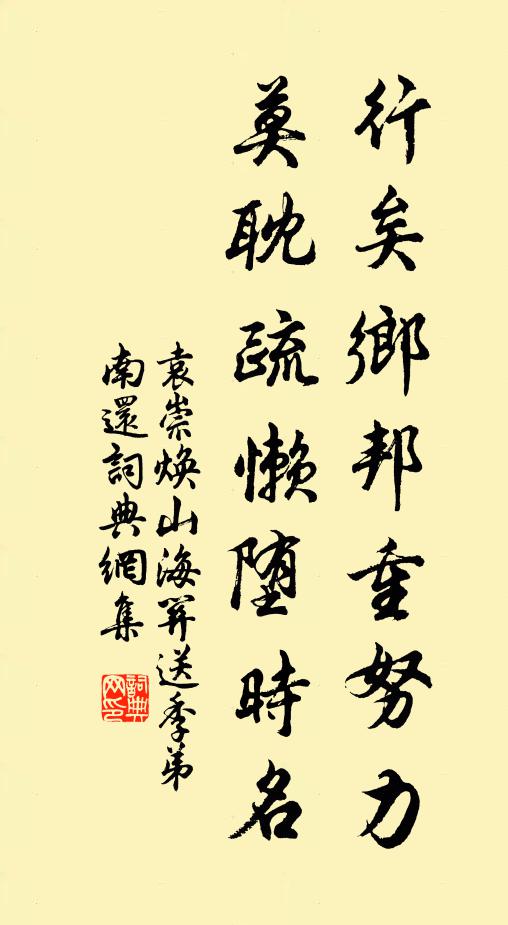 行矣鄉邦重努力
莫耽疏懶墮時名
袁崇煥山海關送季弟
南還詞典網集
詞典网印